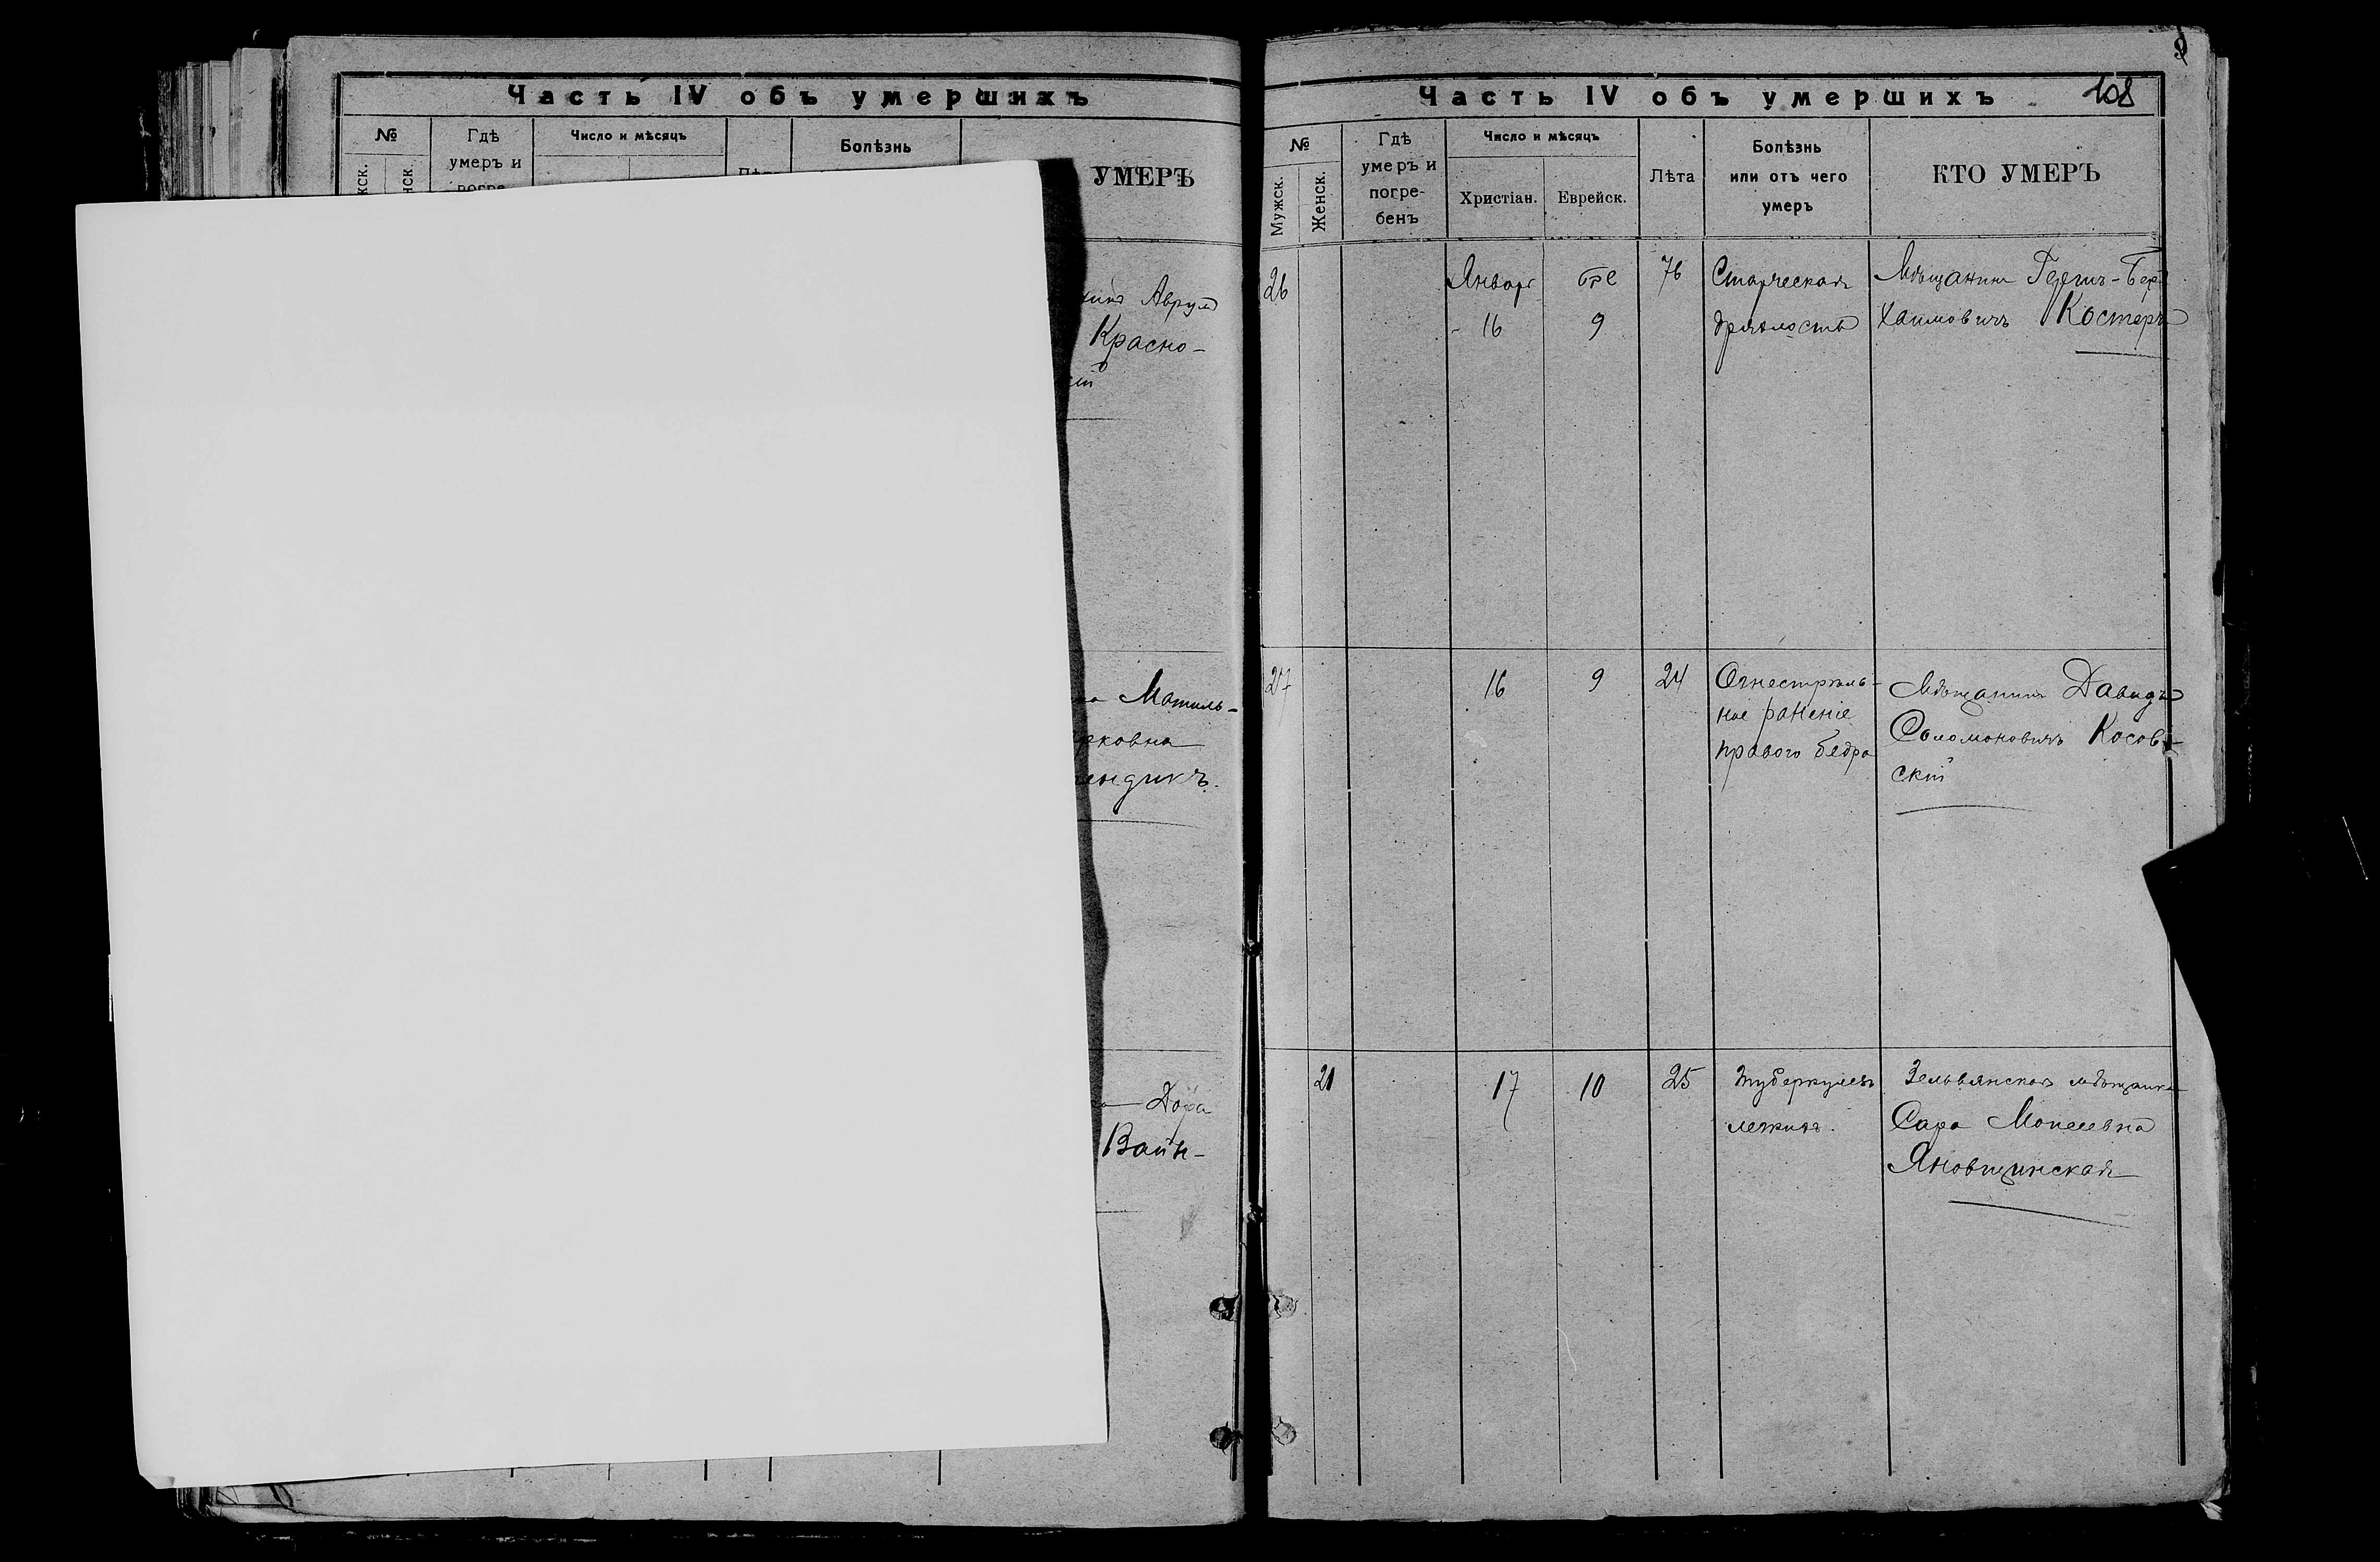 Часть IV объ умершихъ
№
Гдѣ
умеръ и
погре-
Число и мѣсяцъ
Болѣзнь
УМЕРЪ
Аврум
Красно-
Матиль-
Дора
Вайн-
108
Часть IV объ умершихъ
№
Мужск.
Женск.
Гдѣ
умеръ и
погре-
бенъ
Число и мѣсяцъ
Христіан.
Еврейск.
Лѣта
Болѣзнь
или отъ чего
умеръ
КТО УМЕРЪ
26
Январь
16
9
76
Старческая
дряхлость
Мѣщанинъ Гершъ-Бер
Хаимовичъ Костеръ
27
16
9
24
Огнестрѣль-
ное раненіе
праваго бедра
Мѣщанинъ Давидъ
Соломоновичъ Косов-
скій
21
17
10
25
Туберкулезъ
легкихъ.
Зельвянская мѣщанка
Сара Моисеевна
Яновщинская